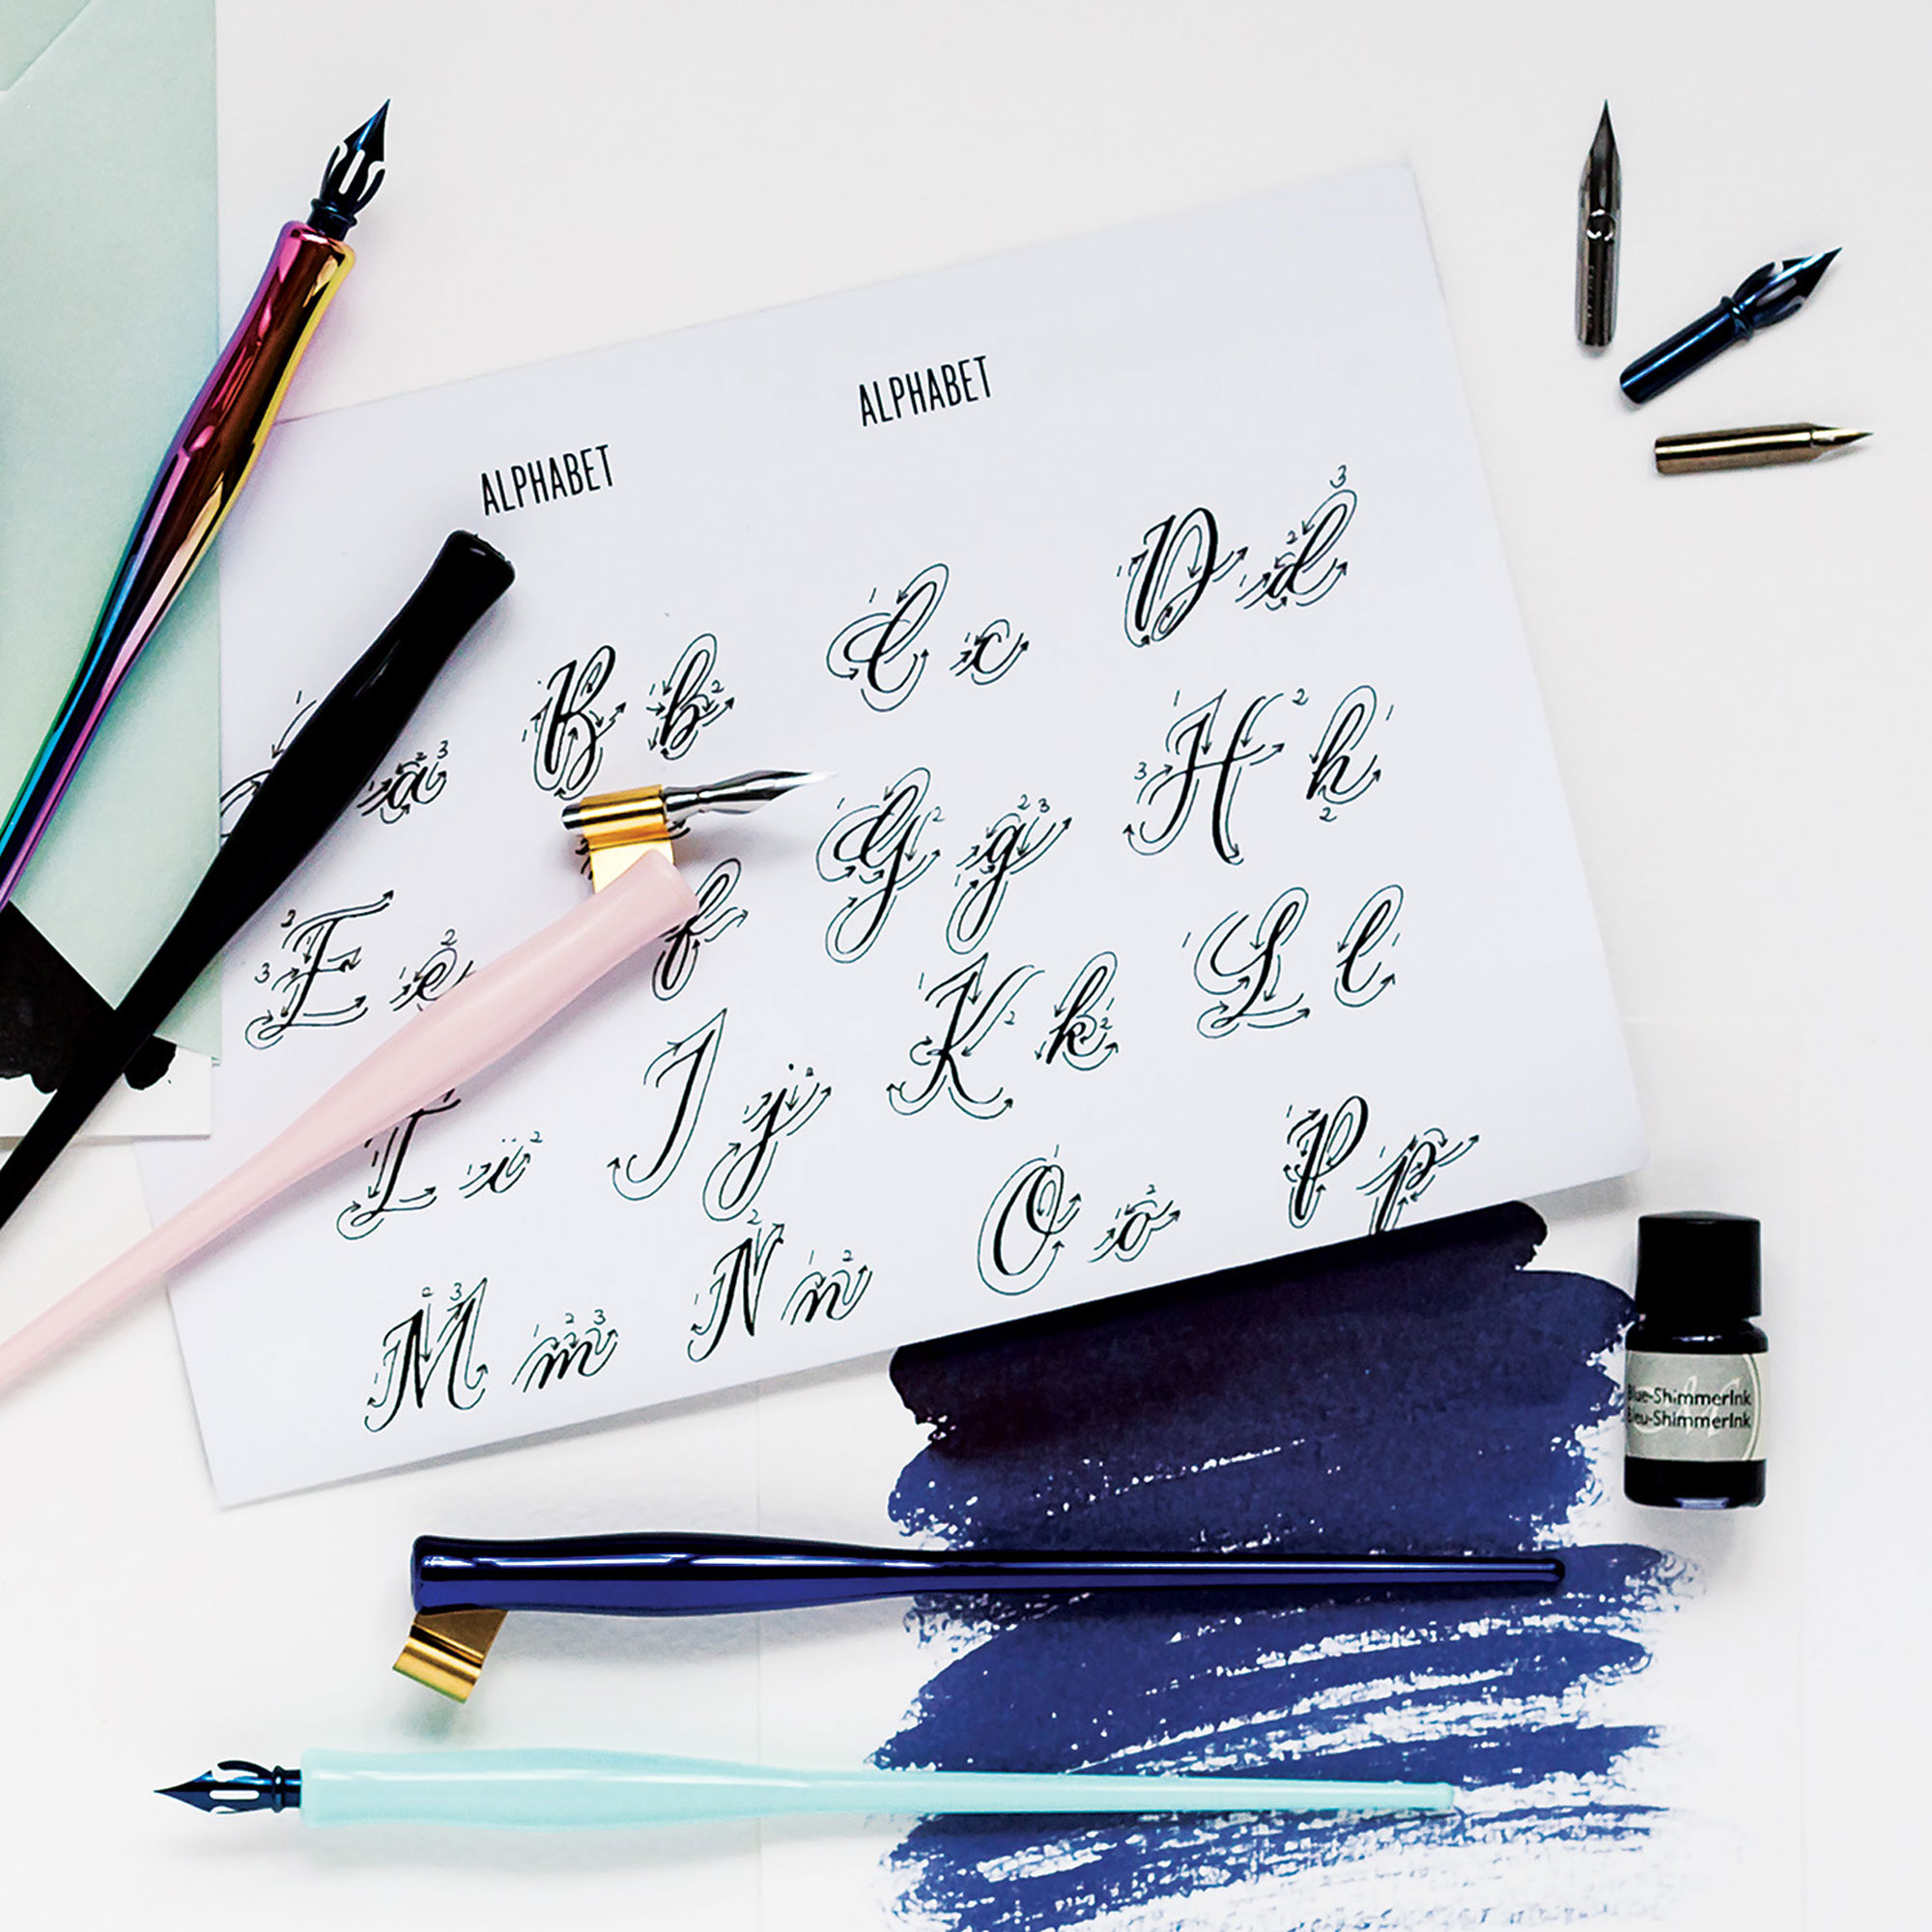 ALPHABET
ALPHABET
a B b C c D d
E e f G g H h
I i J j K k L l
M m N n O o P p
Blue-ShimmerInk
Bleu-ShimmerInk